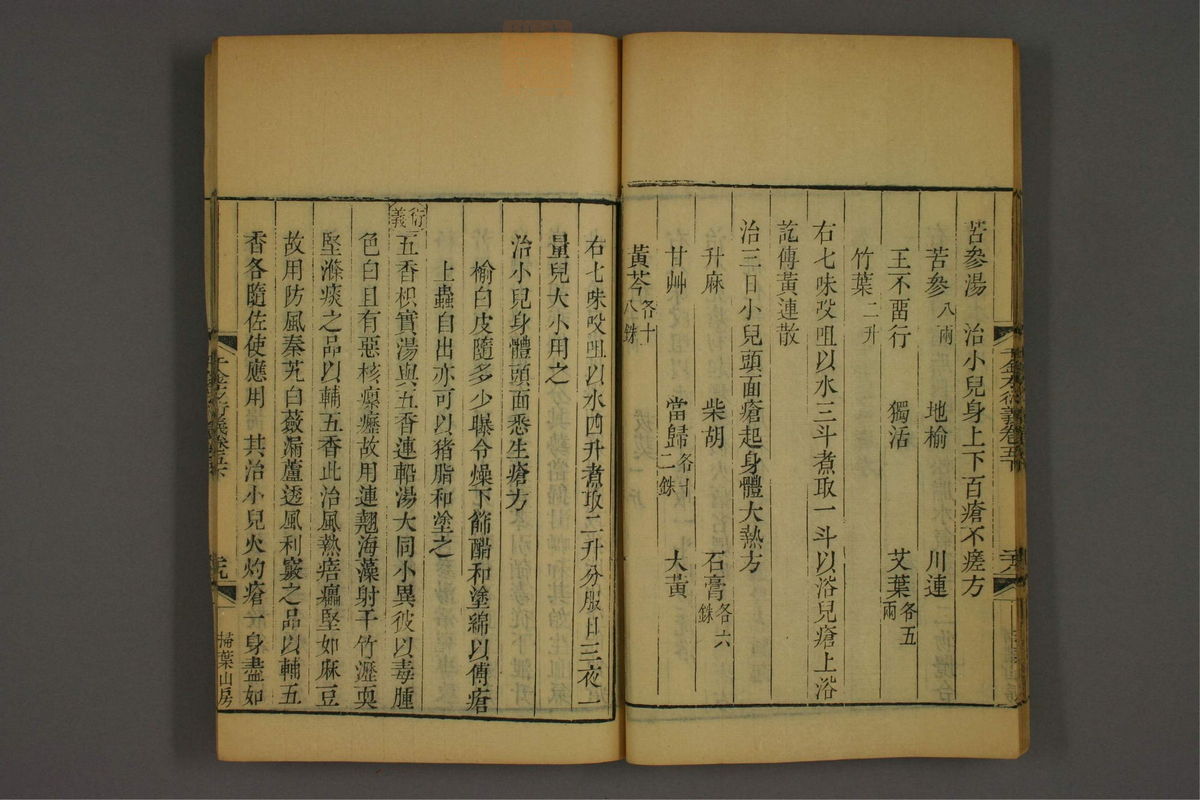 苦參湯　治小兒身上下百瘡不瘥方
苦參八兩　地榆　川連
王不畱行　獨活　艾葉各五兩
竹葉二升
右七味㕮咀以水三斗煮取一斗以浴兒瘡上浴
訖傅黃連散
治三日小兒頭面瘡起身體大熱方
升麻　柴胡　石膏各六銖
甘艸　當歸各十二銖　大黃
黃芩各十八銖
右七味㕮咀以水四升煮取二升分服日三夜一
量兒大小用之
治小兒身體頭面悉生瘡方
榆白皮隨多少曝令燥下篩醋和塗綿以傅瘡
上蟲自出亦可以猪脂和塗之
衍義
五香枳實湯與五香連軺湯大同小異彼以毒腫
色白且有惡核瘰癧故用連翹海藻射干竹瀝耎
堅滌痰之品以輔五香此治風熱㾦癗堅如麻豆
故用防風秦艽白蘞漏蘆透風利竅之品以輔五
香各隨佐使應用　其治小兒火灼瘡一身盡如
掃葉山房